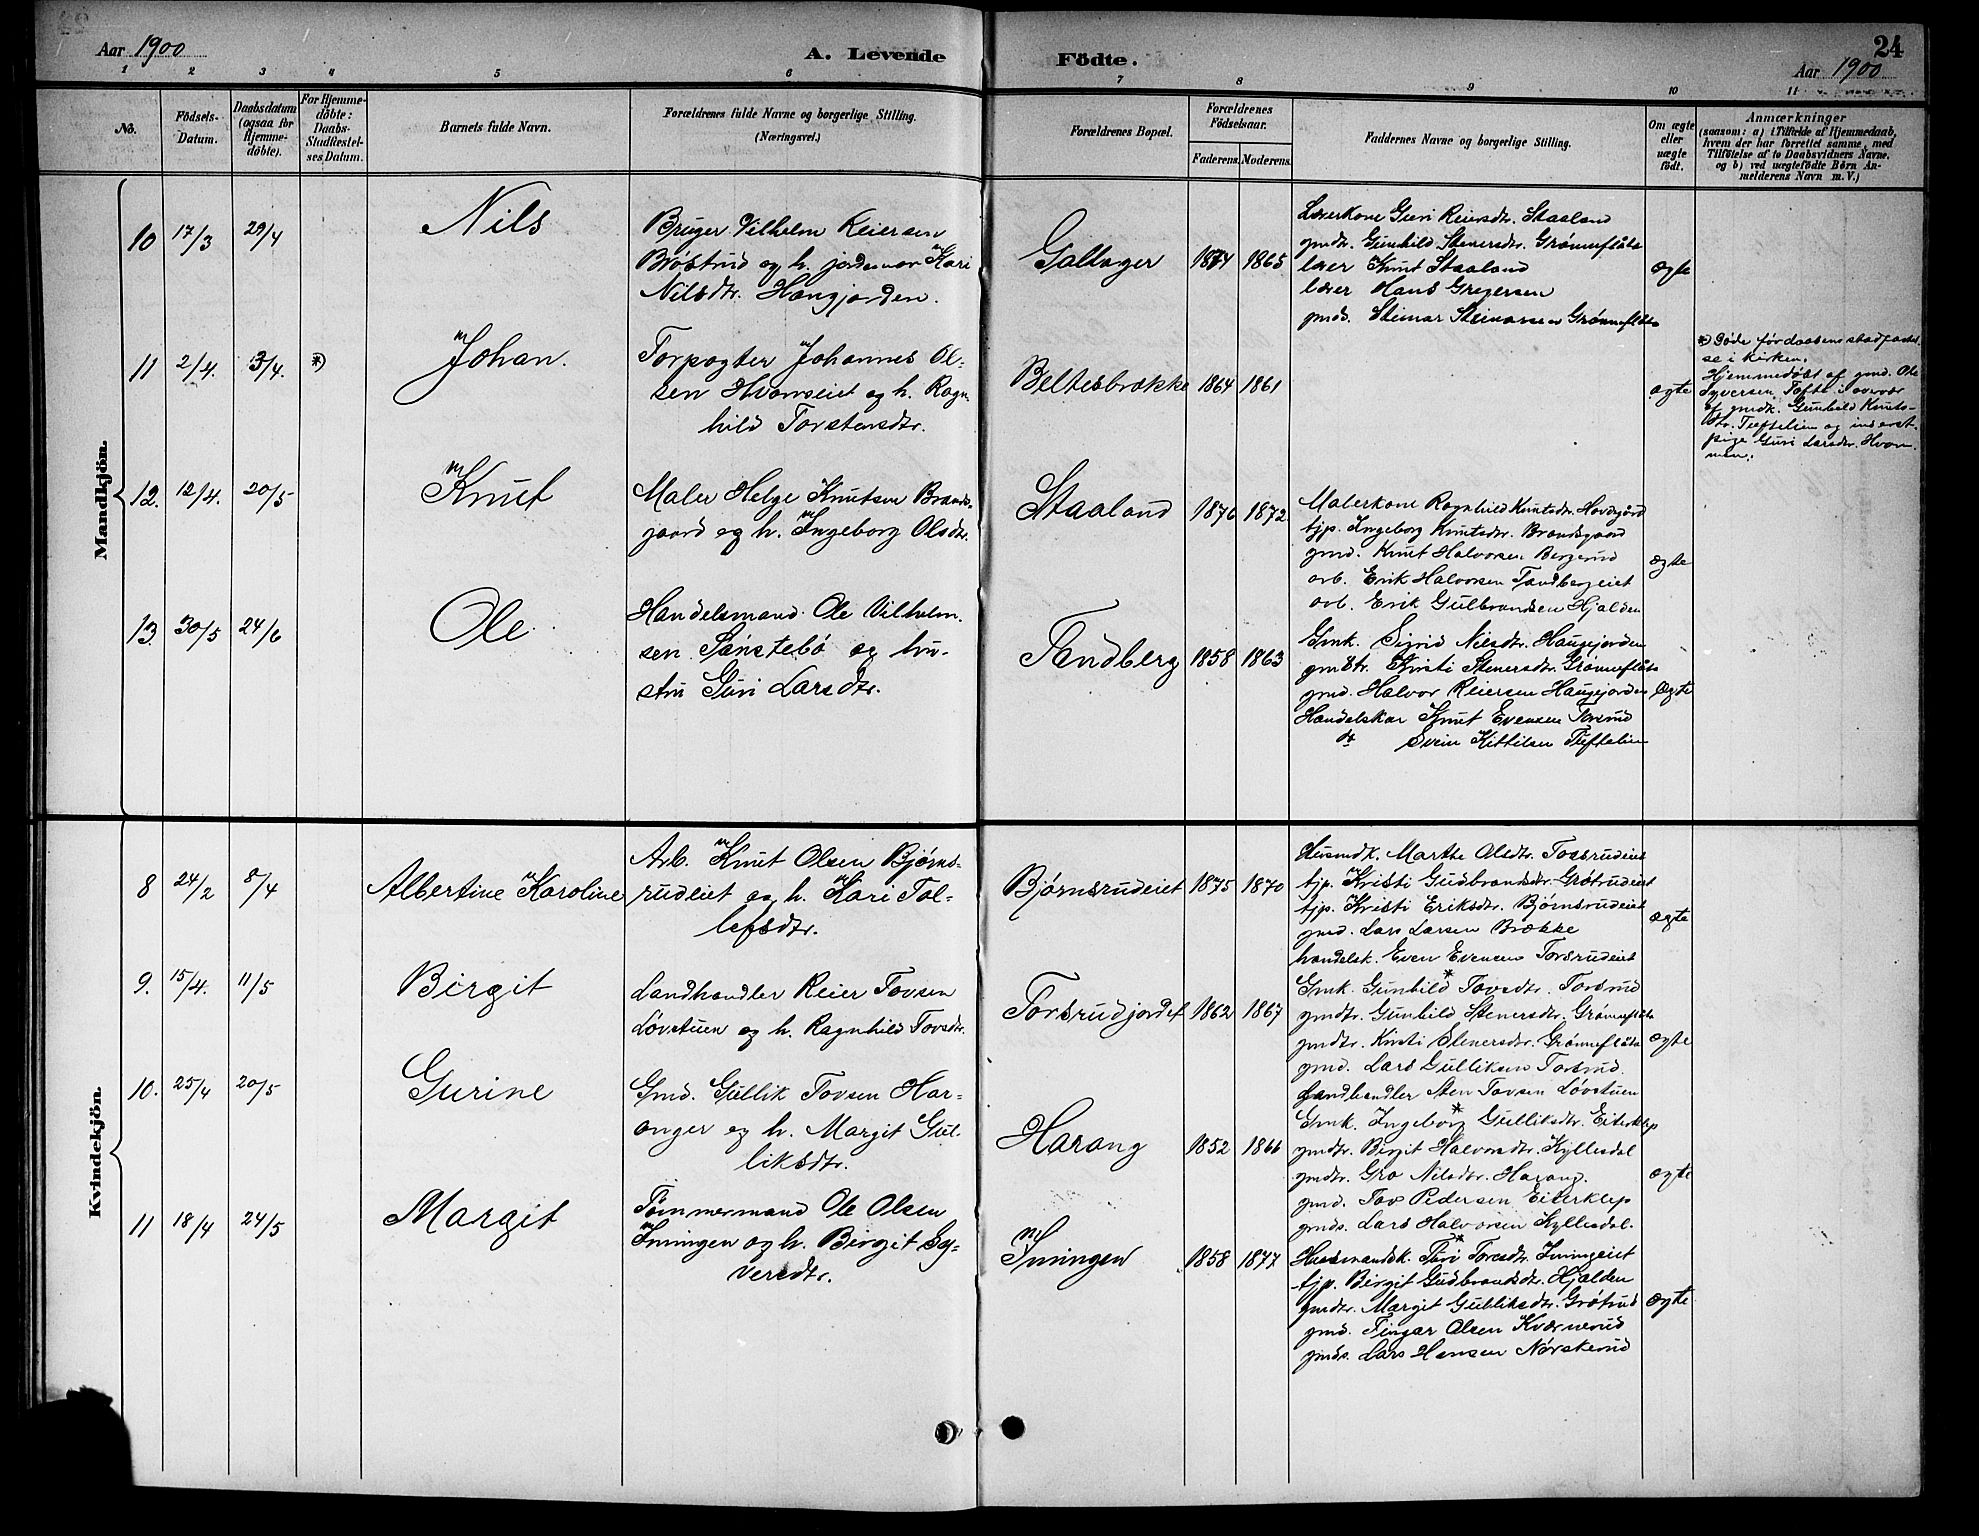 Aar 1900
A. Levende
Födte.
24
Aar 1900
1 2 3 4 5 6 7 8 9 10 11
No.
Födsels-
Datum.
Daabsdatum
(ogsaa for
Hjemme-
döbte).
For Hjemme-
döbte:
Daabs-
Stadfæstel-
ses Datum.
Barnets fulde Navn.
Forældrenes fulde Navne og borgerlige Stilling.
(Næringsvei.)
Forældrenes Bopæl.
Forældrenes
Födselsaar.
Faderens. Moderens.
Faddernes Navne og borgerlige Stilling.
Om ægte
eller
uægte
födt.
Anmærkninger
(saasom: a) i Tilfælde af Hjemmedaab,
hvem der har forrettet samme, med
Tilföielse af to Daabsvidners Navne,
og b) ved uægtefödte Börn An-
melderens Navn m. V.)
Mandkjön.
10 17/3 29/4
Nils
Bruger Vilhelm Reiersen
Brøstrud og h. Kari
Nilsdtr. Haugjorden.
Gallager
1874 1865
Lærerkone Guri Reiersdtr. Staaland
gmdtr. Gunhild Stenersdtr. Grønneflåta
lærer Knut Staaland
lærer Hans Gregersen
gmds. Steinar Steinarsen Grønneflåta
ægte
11 2/4. 3/4. *)
Johan.
Torpagter Johannes Ol-
sen Hvamseiet og h. Ragn-
hild Torstensdtr.
Beltesbrække
1864 1861
ægte
*) Døde før daabens stadfæstel-
se i kirken.
Hjemmedøbt af gmd. Ole
Syversen Tofte i overvær
af gmdk. Gunhild Knuts-
dtr. Tuftelien og inderst-
pige Guri Larsdtr. Hvam-
men.
12. 12/4. 20/5
Knut
Maler Helge Knutsen Brands-
gaard og h. Ingeborg Olsdtr.
Staaland
1876 1872
Malerkone Ragnhild Knutsdtr. Hovdgård
tjp. Ingeborg Knutsdtr. Brandsgaard
gmd. Knut Halvorsen Bergerud
arb. Erik Halvorsen Tandbergeiet
arb. Erik Gulbrandsen Hjalden
ægte
13. 30/5 24/6
Ole
Handelsmand Ole Vilhelm-
sen Sønstebø og hu-
stru Guri Larsdtr.
Tandberg
1858 1863
Gmk. Sigrid Nilsdtr. Haugejorden
gmdtr. Kristi Stenersdtr. Grønneflåta
gmd. Halvor Reiersen Haugejorden
Handelskar Knut Evensen Torsrud
do Svein Kittilsen Tuftelien
ægte
Kvindekjön.
8 24/2 8/4
Albertine Karoline
Arb. Knut Olsen Bjørns-
rudeiet og h. Kari Tol-
lefsdtr.
Bjørnsrudeiet
1875 1870
Husmdk. Marthe Olsdtr. Tossrudeiet
tjp. Kristi Gudbrandsdtr. Grøtrudeiet
tjp. Kristi Eriksdtr. Bjørnsrudeiet
gmd. Lars Larsen Brække
handelsk. Even Evensen Torsrudeiet
ægte
9. 15/4. 11/5
Birgit
Landhandler Reier Tovsen
Løvstuen og h. Ragnhild Tovsdtr.
Torsrudjordet
1862 1867
Gmk. Gunhild Tovsdtr. Torsrud
gmdtr. Gunhild Stenersdtr. Grønneflåta
gmdtr. Kristi Stenersdtr. Grønneflåta
gmd. Lars Gulliksen Torsrud.
Landhandler Sten Tovsen Løvstuen
ægte
10. 25/4 20/5
Gurine
Gmd. Gullik Tovsen Har-
anger og h. Margit Gul-
liksdtr.
Harang
1852 1866
Gmk. Ingeborg Gulliksdtr. Eiterklep
gmdtr. Birgit Halvorsdtr. Kyllesdal
gmdtr. Gro Nilsdtr. Harang.
gmd. Tov Pedersen Eiterklep
gmds. Lars Halvorsen Kyllesdal.
ægte
11 18/4 24/5
Margit
Tømmermand Ole Olsen
Imingen og h. Birgit Sy-
versdtr.
Imingen
1858 1877
Husmandsk. Turi Toresdtr. Imingeiet
tjp. Birgit Gudbrandsdtr. Hjalden
gmdtr. Margit Gulliksdtr. Grøtrud
gmd. Fingar Olsen Kværnerud
gmds. Lars Hansen Nørsterud
ægte